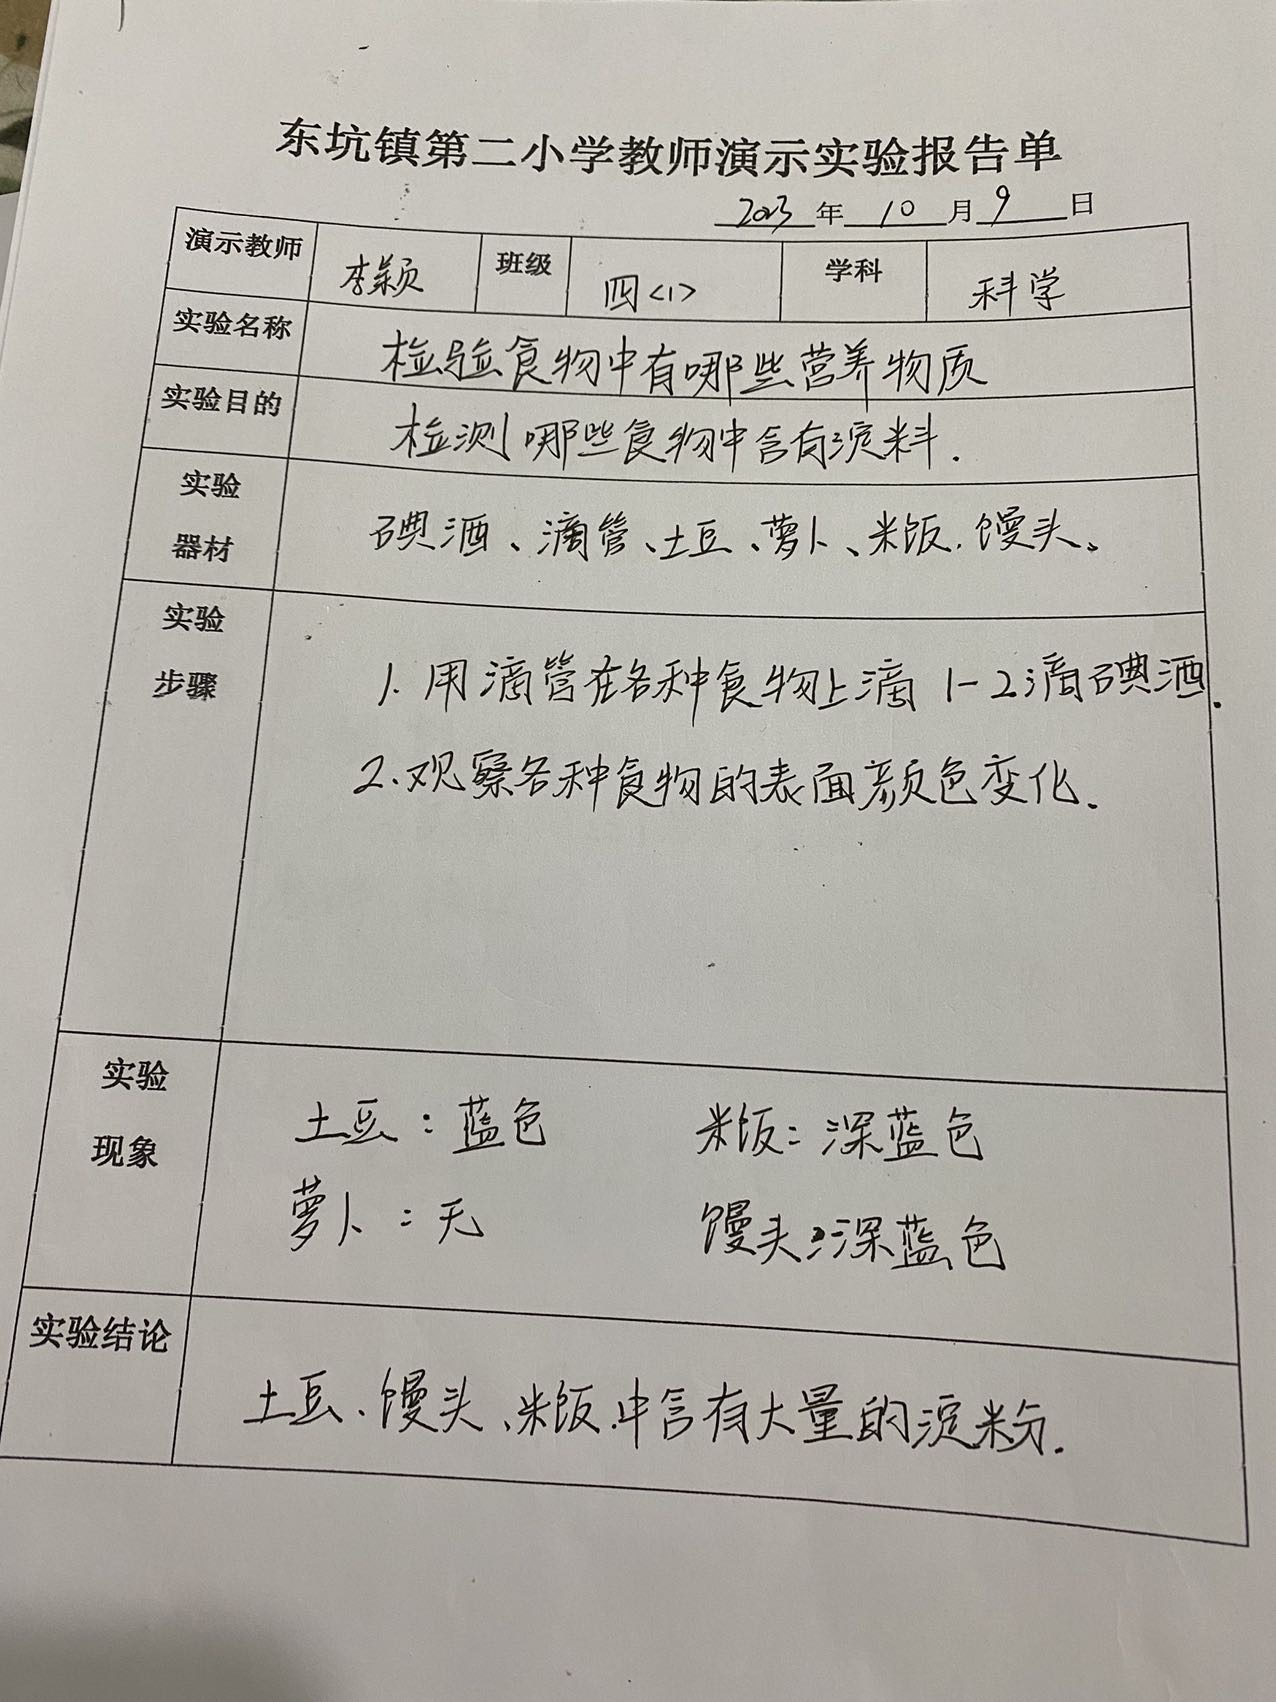 东坑镇第二小学教师演示实验报告单
2023年10月9日
演示教师 李颖 班级 四<1> 学科 科学
实验名称 检验食物中有哪些营养物质
实验目的 检测哪些食物中含有淀料.
实验
器材 碘酒、滴管、土豆、萝卜、米饭、馒头、
实验
步骤 1.用滴管在各种食物上滴1-2滴碘酒.
2.观察各种食物的表面颜色变化.
实验
现象 土豆:蓝色 米饭:深蓝色
萝卜:无 馒头:深蓝色
实验结论 土豆、馒头、米饭中含有大量的淀粉.